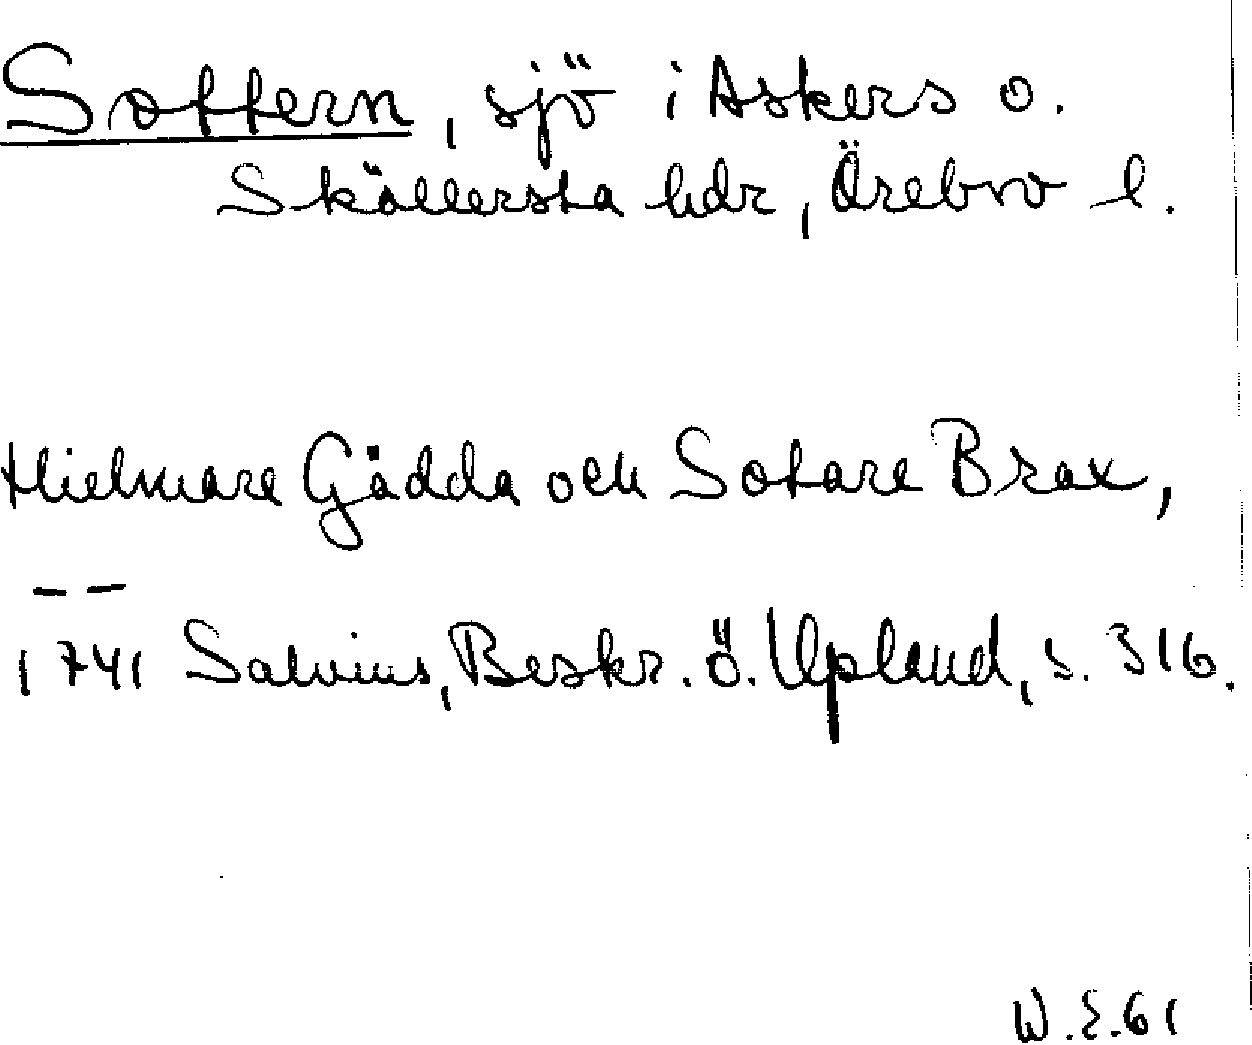 Sottern, sjö i Askers o.
Sköllersta hdr, Örebro l.
Hielmare Gädda och Sotare Brax,
– –
1741 Salvius, Beskr. ö. Upland, s. 316.
W.E.61